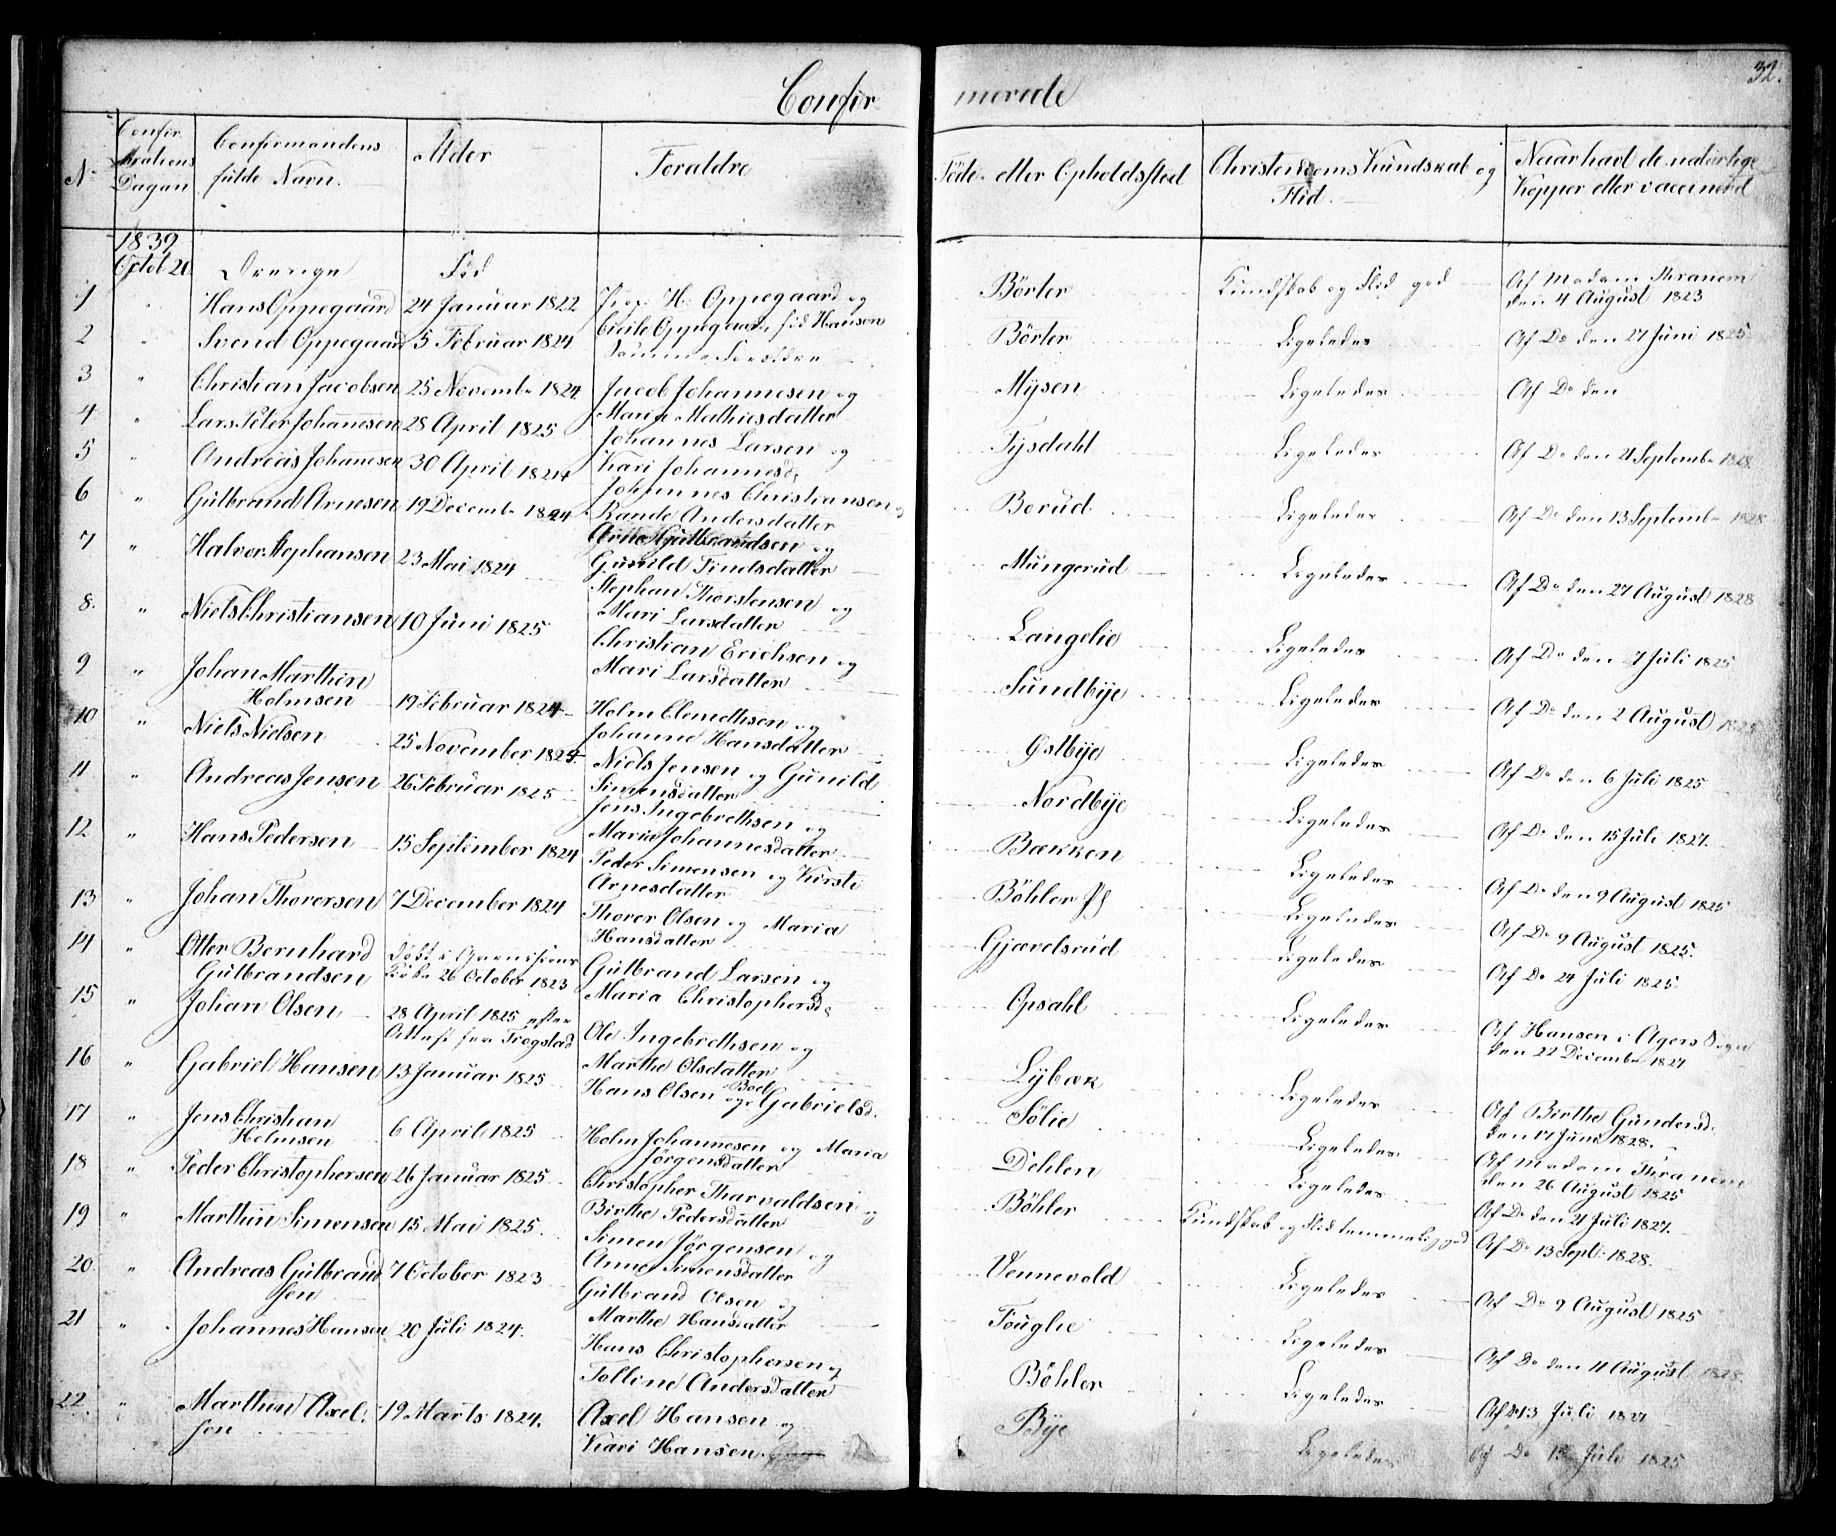 32.
Confir merede
No
Confir
mations
Dagen
Confirmandens
fulde Navn.
Alder
Foraldre
Föde- eller Opholdssted
Christendoms Kundskab og
Flid.
Naar had de naturlige
Kopper eller vaccinerd
1839
Octob 20.
Drenge
Fød
1 " Hans Oppegaard 24 Januar 1822 H. Oppegaard og
Cicile Oppegaard fød Hansen
Börter
Kundskab og Flid god
Af Madam Thranem
den 4 August 1823
2 " Svend Oppegaard 5 Februar 1824
Samme Forældre
Börter
Ligeledes
Af Do den 27 Juni 1825
3 " Christian Jacobsen 25 Novembe 1824 Jacob Johannesen og
Maria Mathiesdatter
Mÿsen
Ligeledes
Af Do den
4 " Lars Peter Johannesen 28 April 1825 Johannes Larsen og
Kari Johannesd
Tÿsdahl
Ligeledes
Af Do den 21 Septembe 1828
5 " Andreas Johanesen 30 April 1824 Johannes Christiansen og
Rande Andersdatter
Borud
Ligeledes
Af Do den 13 Septembe 1828
6 " Gulbrand Arnesen 19 Decembe 1824 Arne Gulbrandsen og
Gunild Findsdatter
Mungerud
Ligeledes
Af Do den 27 August 1828
7 " Halvor Stephansen 23 Mai 1824 Stephan Thorstensen og
Mari Larsdatter
Langelie
Ligeledes
Af Do den 7 Juli 1825
8. " Niels Christiansen 10 Juni 1825 Christian Erichsen og
Mari Larsdatter
Sundbÿe
Ligeledes
Af Do den 2 August 1825
9 " Johan Marthin
Holmsen
19 Februar 1824 Holm Clemethsen og
Johanne Hansdatter
Østbÿe
Ligeledes
Af Do den 6 Juli 1825
10 " Niels Nielsen 25 November 1825. Niels Jensen og Gunild
Simensdatter
Nordbÿe
Ligeledes
Af Do den 15 Juli 1827.
11 " Andreas Jensen 26 Februar 1825 Jens Ingebrethsen og
Maria Johannesdatter
Bækken
Ligeledes
Af Do den 9 August 1825
12 " Hans Pedersen 15 September 1824 Peder Simensen og Kirsti
Arnesdatter
Böhler
Ligeledes
Af Do 9 August 1825.
13 " Johan Thorersen 7 December 1824 Thorer Olsen og Maria
Hansdatter
Gjævelsrud
Ligeledes
Af Do 24 Juli 1825
14 " Otter Bernhard
Gulbrandsen
døbt i Garnisons
Kirke 26 October 1823
Gulbrand Larsen og
Maria Christophersd
Opsahl
Ligeledes
Af Hansen i Agers Sogn
den 22 Decembe 1824
15 " Johan Olsen 28 April 1825 efter
Attest fra Trøgstad
Ole Ingebrethsen og
Marthe Olsdatter
Lÿbæk
Ligeledes
Af Birthe Gundersd.
den 17 Juni 1828.
16 " Gabriel Hansen 13 Januar 1825 Hans Olsen og Boel Gabrielsd.
Sølie
Ligeledes
Af Madam Thranem
den 26 August 1825
17 " Jens Christian
Holmsen
6 April 1825 Holm Johannesen og Maria
Jørgensdatter
Dehlen
Ligeledes
Af Do den 21 Juli 1827.
18 " Peder Christophersen 26 Januar 1825 Christopher Tharvaldsen og
Birthe Pedersdatter
Böhler
Kundskab og Flid temmelig god
Af Do 13 Sept: 1828.
19 " Marthin Simensen 15 Mai 1825. Simen Jørgensen og
Anne Simensdatter
Vennevold
Ligeledes
Af Do 9 August 1825
20 " Andreas Gulbrand
sen
7 October 1823 Gulbrand Olsen og
Marthe Hansdatter
Foughe
Ligeledes
Af Do den 11 August 1828
21 " Johannes Hansen 20 Juli 1824. Hans Christophersen og
Tolline Andersdatter
Böhler
Ligeledes
Af Do 13 Juli 1827
22. " Marthin Axel:
sen
19 Marts 1824. Axel Hansen og
Kari Hansen
Bÿe
Ligeledes
Af Do 13 Juli 1825